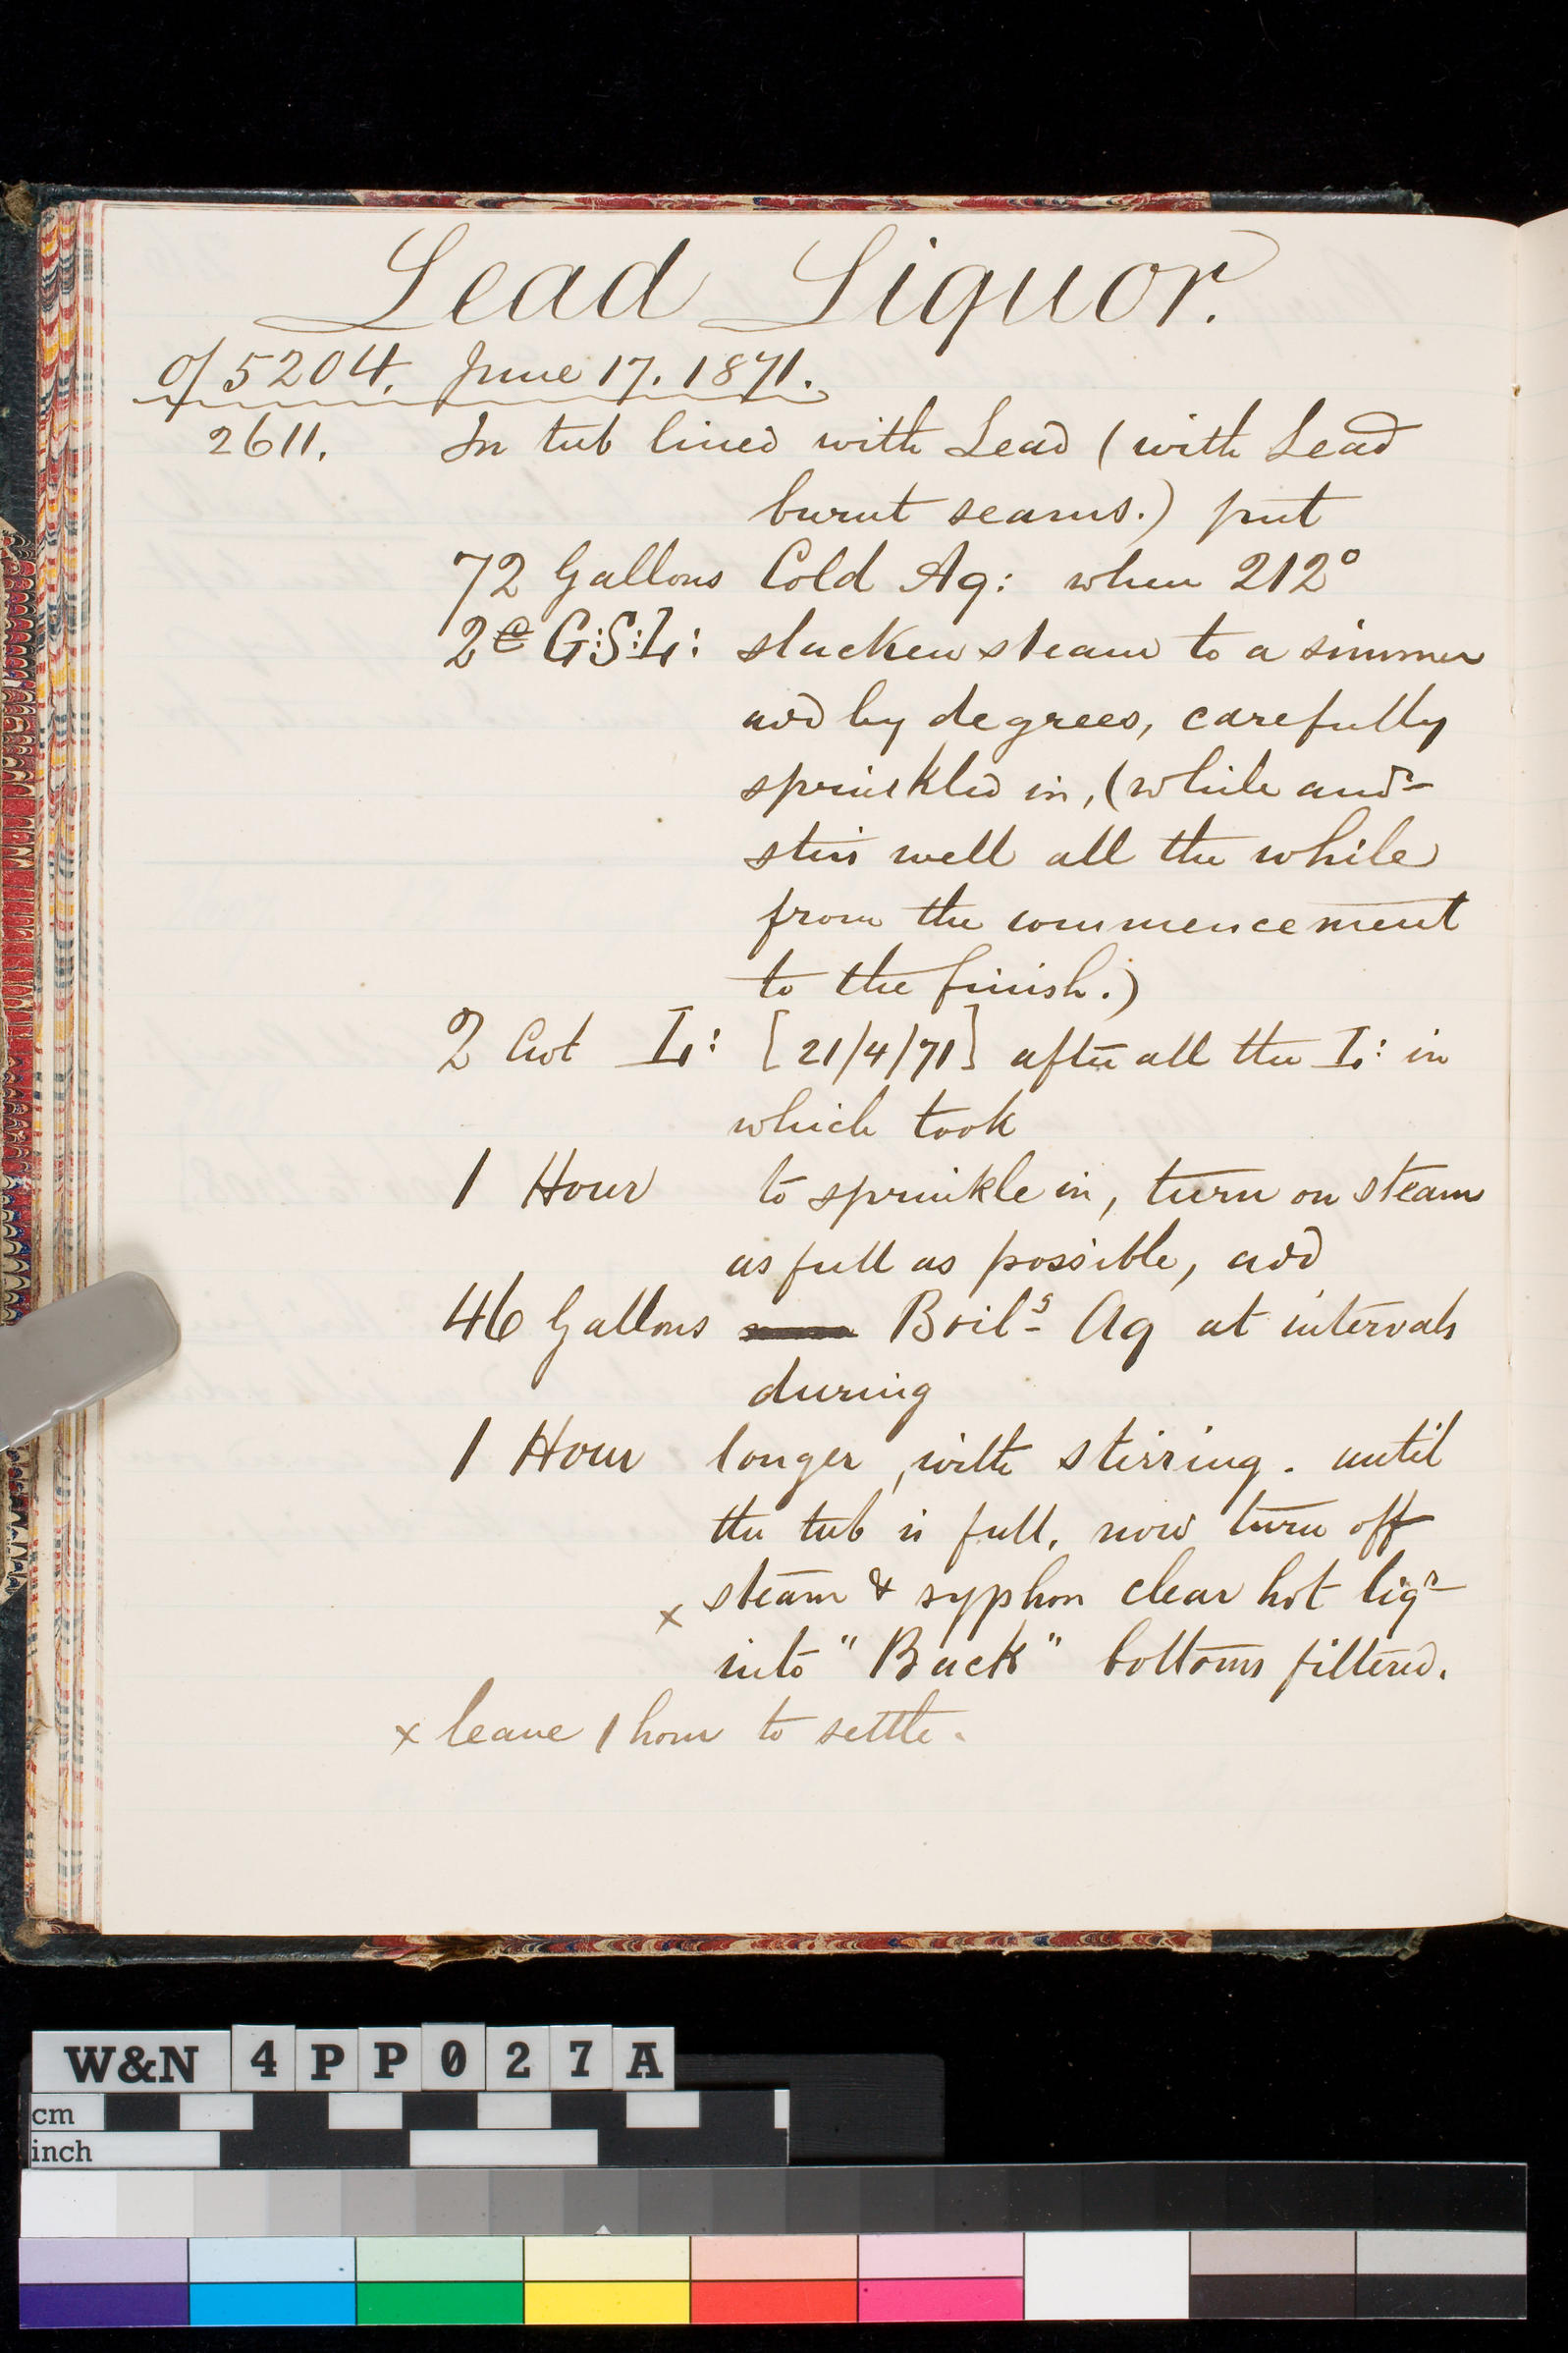 Lead Liquor.
o/ 5204. June 17. 1871.
2611. In tub lined with Lead (with Lead
burnt seams.) put
72 Gallons Cold Aq: when 212°
2 G:S:L: slacken steam to a simmer
add by degrees, carefully
sprinkled in, (while
stir well all the while
from the commencement
to the finish.)
2 Cwt L: [21/4/71] after all the L: in
which took
1 Hour to sprinkle in, turn on steam
as full as possible, add
46 Gallons Boilg Aq at intervals
during
1 Hour longer, with stirring. until
the tub is full. now turn off
x steam & syphon clear hot liqr
into "Back" bottoms filtered.
x leave 1 hour to settle.
W&N 4PP027A
cm
inch